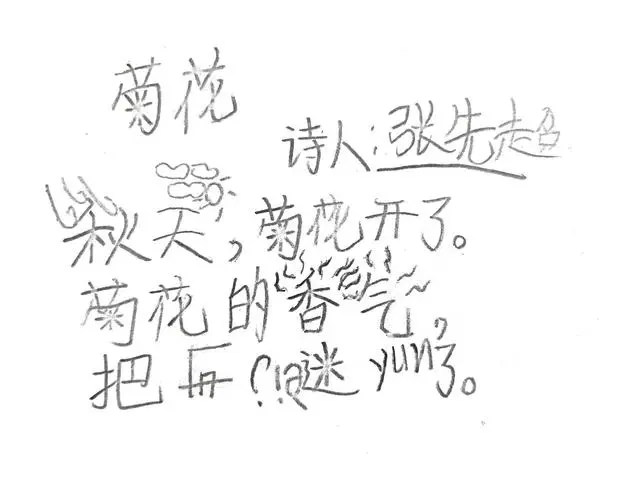 菊花
诗人:张先超
秋天,菊花开了。
菊花的香气,
把 迷yun了。